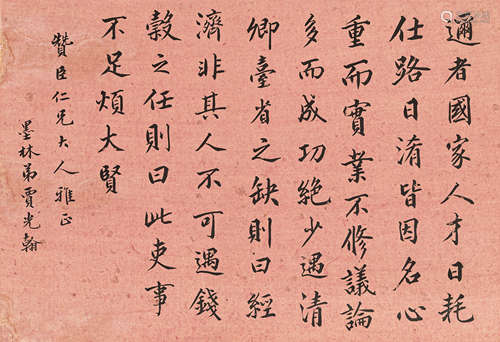 邇者國家人才日耗
仕路日淆皆因名心
重而實業不修議論
多而成功絕少遇清
卿臺省之缺則曰經
濟非其人不可遇錢
穀之任則曰此吏事
不足煩大賢
贊臣仁兄大人雅正
墨林弟賈光翰